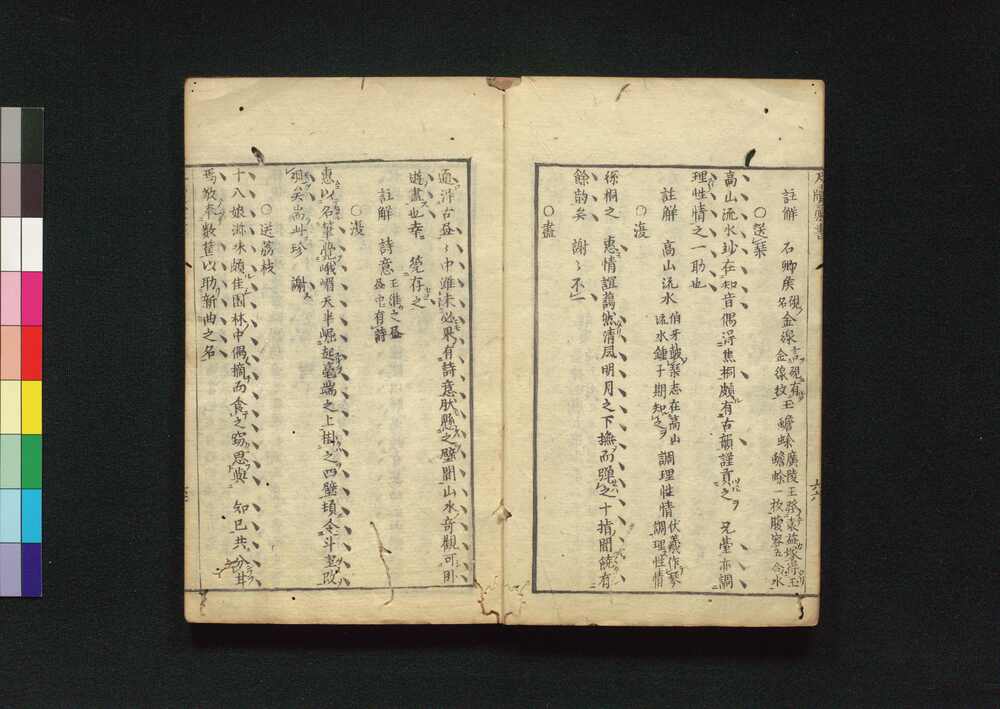 註解 石卿侯 硯名 金線 玉蟾蜍 廣陵王發袁盎塚得玉蟾蜍一枚腹容五合水
〇送琴
高山流水玅在知音偶得焦桐頗有古韻謹貢之 兄臺亦調
理性情之一助也
註解 高山流水 伯牙鼓琴志在高山流水鍾子期知之 調理性情 伏羲作琴調理性情
〇復
桐之 惠情誼藹然清風明月之下撫而彈之十指間饒有
餘韵矣 謝〻不一
〇畫
中雖未必果有詩意肰懸之壁間山水奇觀可用
遊畫也幸 筦存之
註解 詩意 王維之畫 有詩
〇復
惠以名筆覺峨嵋天半崛起毫端之上樹之四壁頃令斗室改
觀矣耑此珍 謝
〇送荔枝
十八娘游味頗佳園林中偶摘而食之竊思與 知已共分甘
焉敬奉數筐以助新曲之名